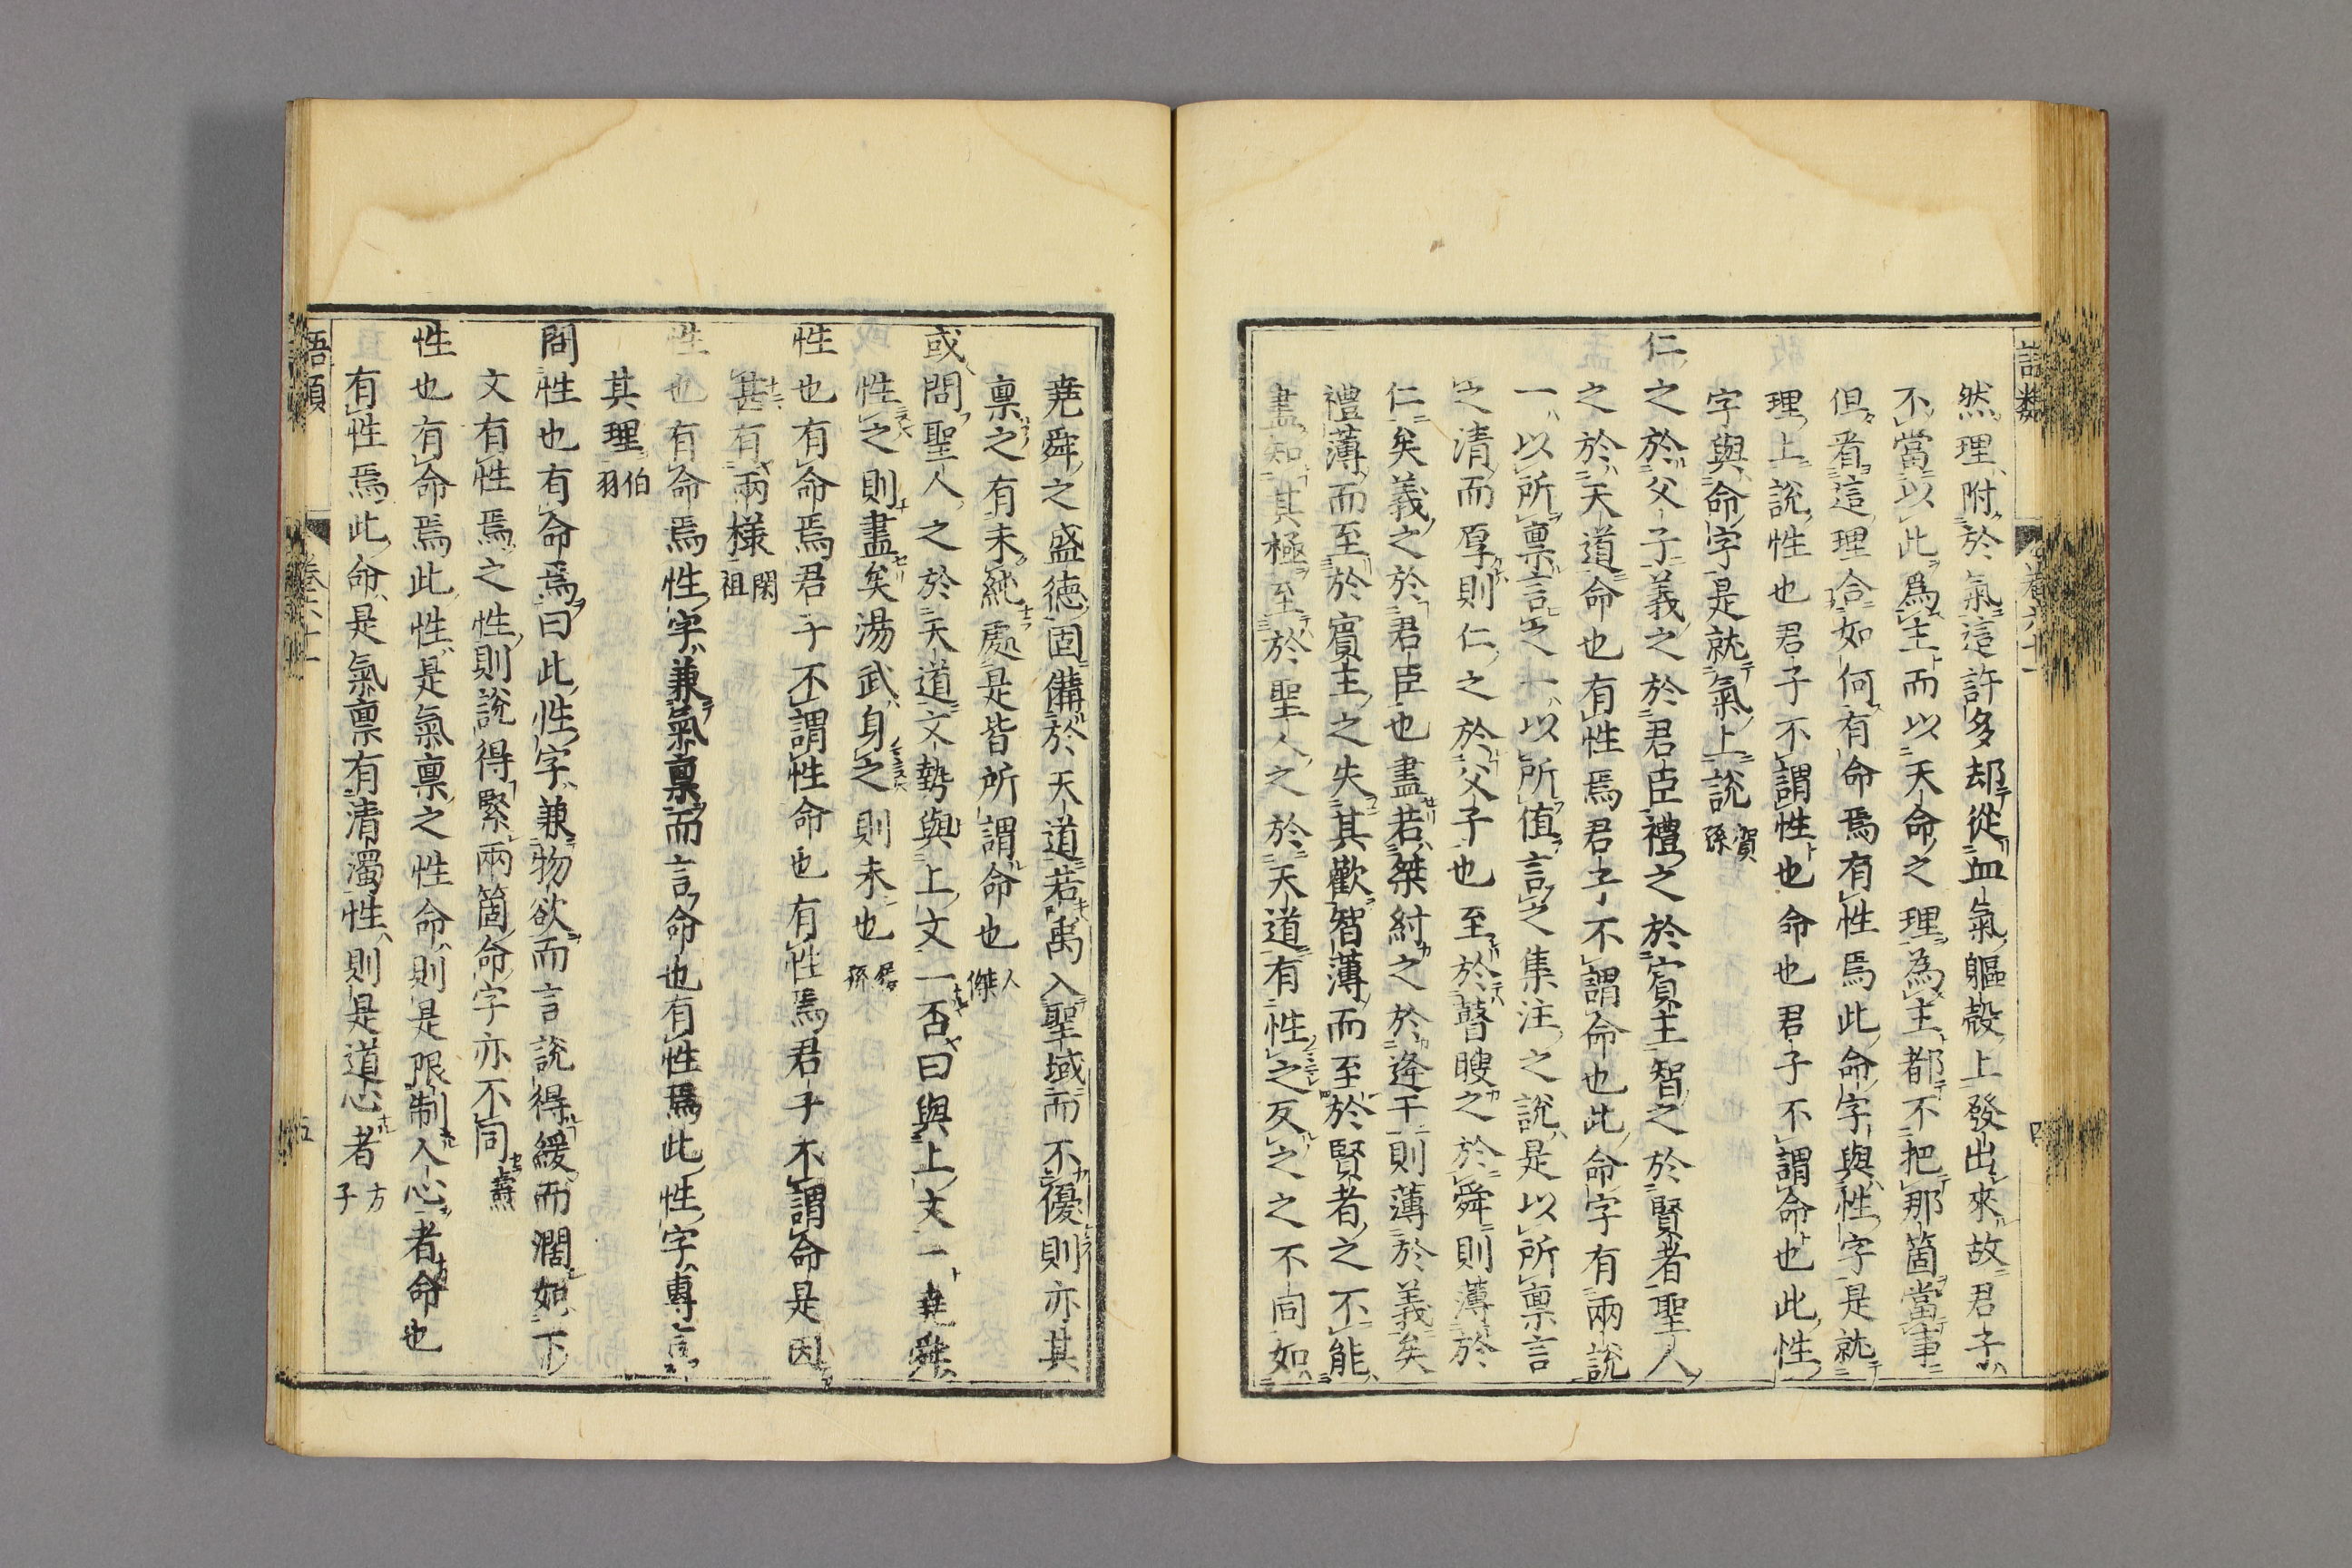 語類
卷六十一
四
然理附於氣這許多却從血氣軀殼上發出來故君子
不當以此爲主而以天命之理為主都不把那箇當事
但看這理合如何有命焉有性焉此命字與性字是就
理上說性也君子不謂性也命也君子不謂命也此性
字與命字是就氣上說賀孫
仁之於父子義之於君臣禮之於賓主智之於賢者聖人
之於天道命也有性焉君子不謂命也此命字有兩說
一以所禀言之一以所值言之集注之說是以所禀言
之清而厚則仁之於父子也至於瞽瞍之於舜則薄於
仁矣義之於君臣也盡若桀紂之於逄干則薄於義矣
禮薄而至於賓主之失其歡智薄而至於賢者之不能
盡知其極至於聖人之於天道有性之反之之不同如
堯舜之盛德固備於天道若禹入聖域而不優則亦其
禀之有未純處是皆所謂命也人傑
或問聖人之於天道文勢與上文一否曰與上文一堯舜
性之則盡矣湯武身之則未也履孫
性也有命焉君子不謂性命也有性焉君子不謂命是因
甚有兩樣閎祖
性也有命焉性字兼氣禀而言命也有性焉此性字專言
其理伯羽
問性也有命焉曰此性字兼物欲而言說得緩而濶如下
文有性焉之性則說得緊兩箇命字亦不同燾
性也有命焉此性是氣禀之性命則是限制人心者命也
有性焉此命是氣禀有清濁性則是道心者方子
語類
卷六十一
五